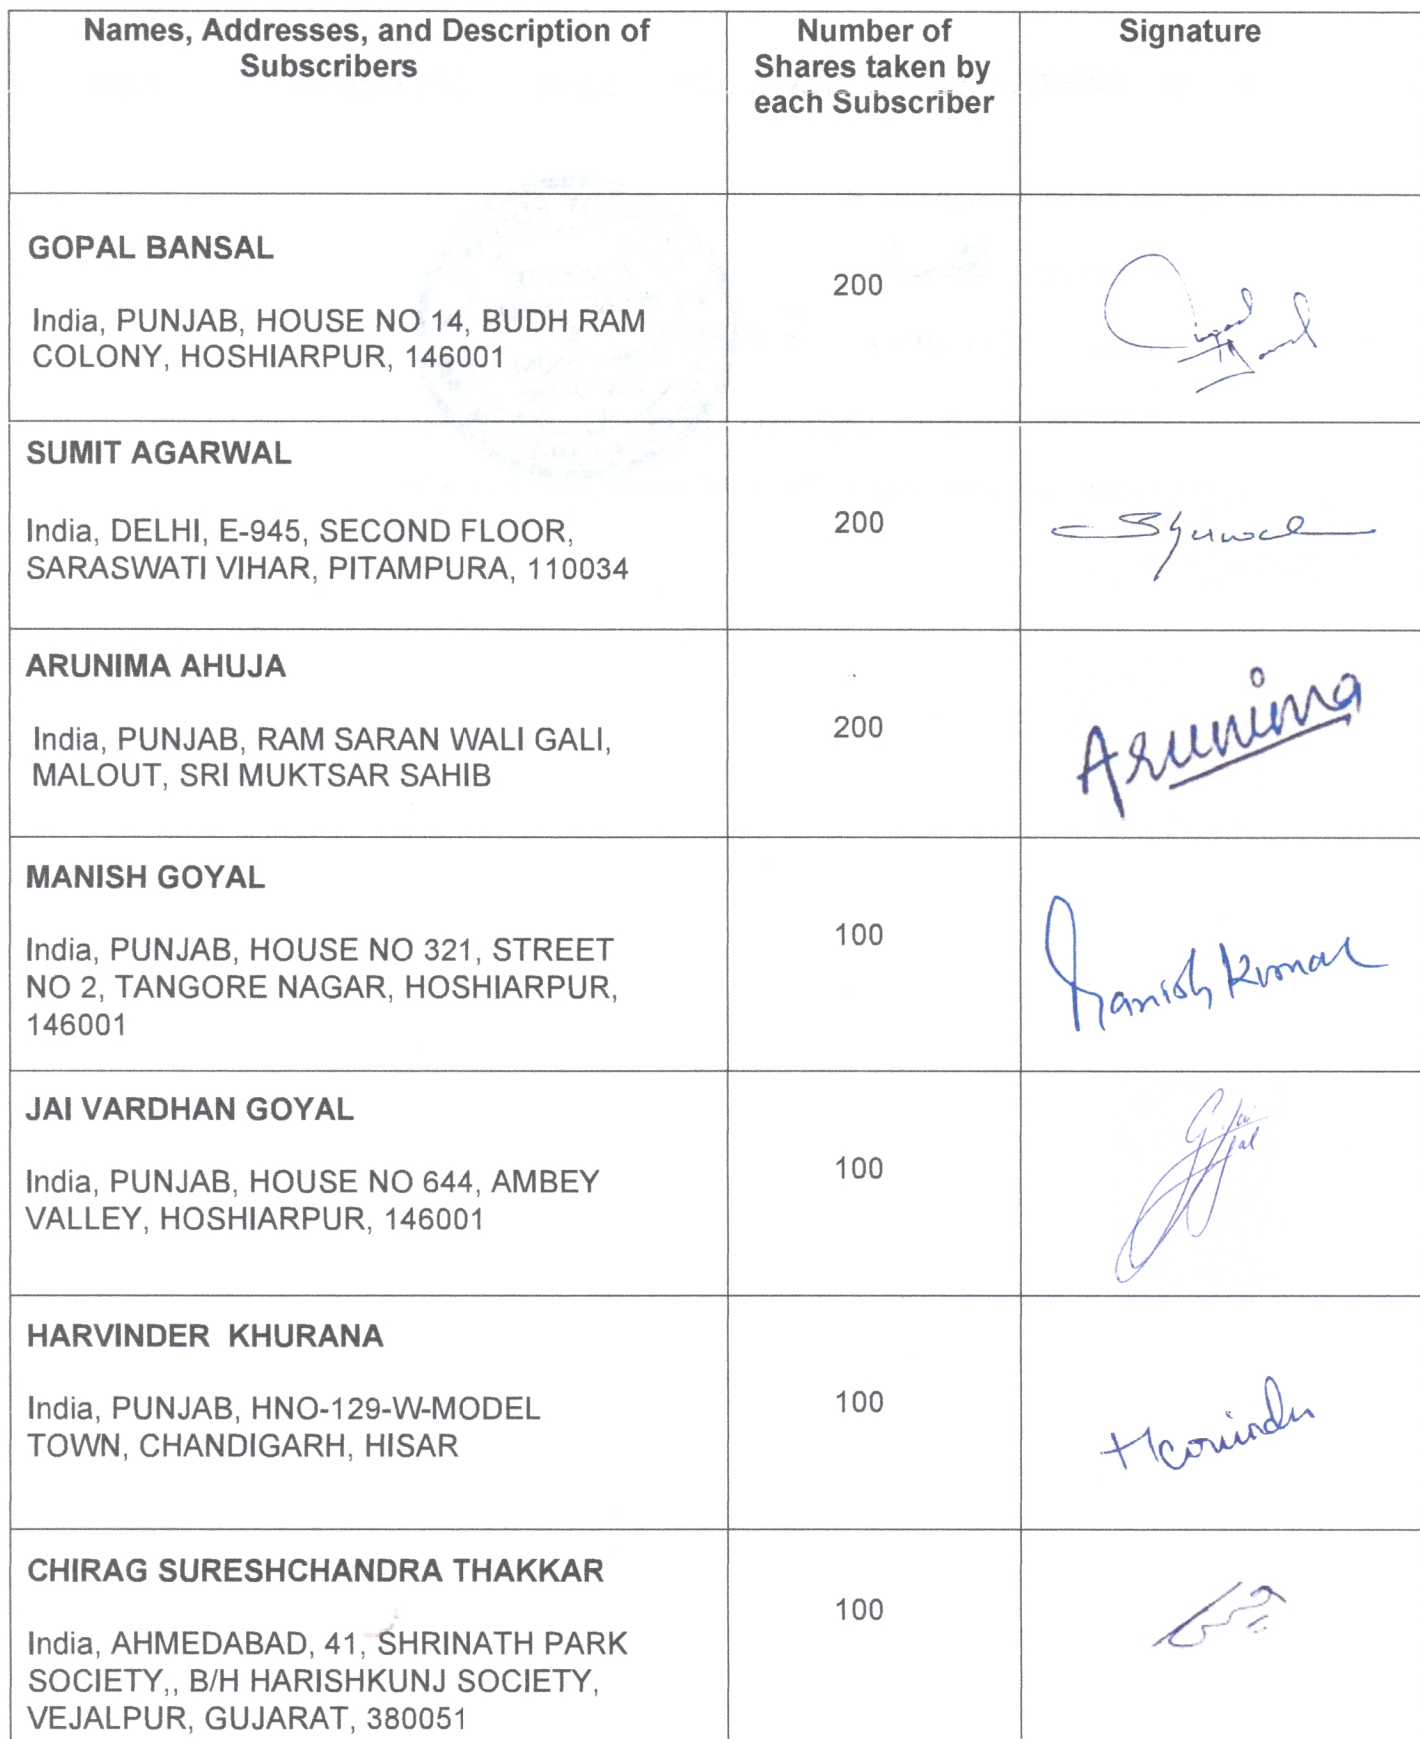 Names, Addresses, and Description of
Subscribers
Number of
Shares taken by
each Subscriber
Signature
GOPAL BANSAL
India, PUNJAB, HOUSE NO 14, BUDH RAM
COLONY, HOSHIARPUR, 146001
200
SUMIT AGARWAL
India, DELHI, E-945, SECOND FLOOR,
SARASWATI VIHAR, PITAMPURA, 110034
200
ARUNIMA AHUJA
India, PUNJAB, RAM SARAN WALI GALI,
MALOUT, SRI MUKTSAR SAHIB
200
Arunima
MANISH GOYAL
India, PUNJAB, HOUSE NO 321, STREET
NO 2, TANGORE NAGAR, HOSHIARPUR,
146001
100
Manish Kumar
JAI VARDHAN GOYAL
India, PUNJAB, HOUSE NO 644, AMBEY
VALLEY, HOSHIARPUR, 146001
100
HARVINDER KHURANA
India, PUNJAB, HNO-129-W-MODEL
TOWN, CHANDIGARH, HISAR
100
Harvinder
CHIRAG SURESHCHANDRA THAKKAR
India, AHMEDABAD, 41, SHRINATH PARK
SOCIETY,, B/H HARISHKUNJ SOCIETY,
VEJALPUR, GUJARAT, 380051
100